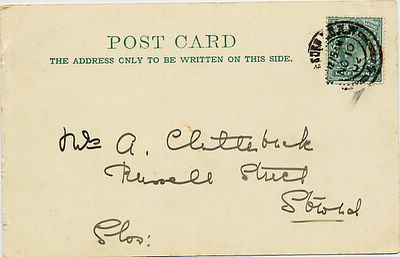 POST CARD
THE ADDRESS ONLY TO BE WRITTEN ON THIS SIDE.
A. Clutterbuck
Russell Street
Stroud
Glos: